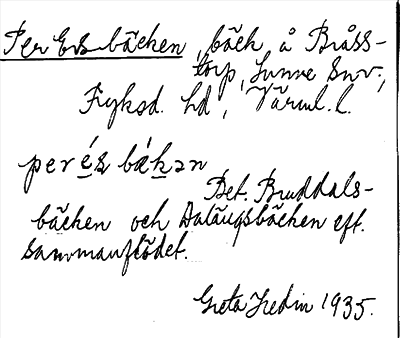 Per Ersbäcken, bäck å Bråss-
torp, Sunne Snv.,
Fryksd. hd, Värml. l.
perés bäkən
Bet. Bruddals-
bäcken och Dalängsbäcken eft.
sammanflödet.
Greta Hedin 1935.